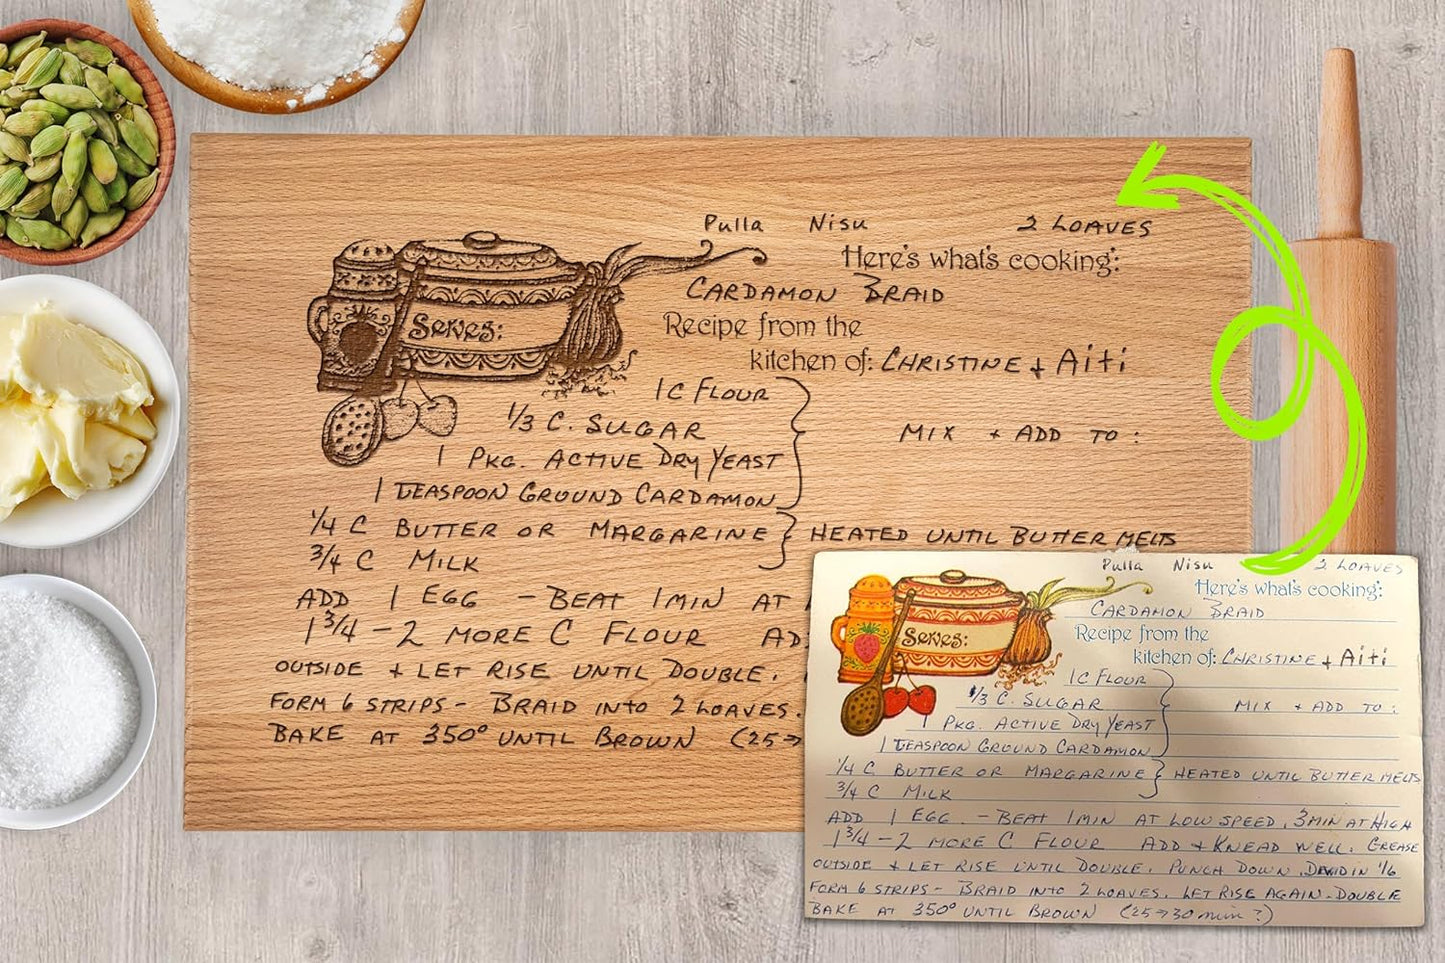 Pulla Nisu 2 LOAVES
Here's what's cooking:
CARDAMON BRAID
Serves:
Recipe from the
kitchen of: CHRISTINE + Aiti
1 C FLOUR
1/3 C. SUGAR
MIX + ADD TO :
1 PKG. ACTIVE DRY YEAST
1 TEASPOON GROUND CARDAMON
1/4 C BUTTER OR MARGARINE } HEATED UNTIL BUTTER MELTS
3/4 C MILK
ADD 1 EGG - BEAT 1 MIN AT
1 3/4 - 2 MORE C FLOUR AD
OUTSIDE + LET RISE UNTIL DOUBLE.
FORM 6 STRIPS - BRAID INTO 2 LOAVES.
BAKE AT 350° UNTIL BROWN (25→
Pulla Nisu 2 LOAVES
Here's what's cooking:
CARDAMON BRAID
Serves:
Recipe from the
kitchen of: CHRISTINE + Aiti
1 C FLOUR
1/3 C. SUGAR
MIX + ADD TO :
1 PKG. ACTIVE DRY YEAST
1 TEASPOON GROUND CARDAMON
1/4 C BUTTER OR MARGARINE } HEATED UNTIL BUTTER MELTS
3/4 C MILK
ADD 1 EGG. - BEAT 1 MIN AT LOW SPEED, 3 MIN AT HIGH
1 3/4 - 2 MORE C FLOUR ADD + KNEAD WELL. GREASE
OUTSIDE + LET RISE UNTIL DOUBLE. PUNCH DOWN. DIVID IN 1/6
FORM 6 STRIPS - BRAID INTO 2 LOAVES. LET RISE AGAIN. DOUBLE
BAKE AT 350° UNTIL BROWN (25→30 min ?)